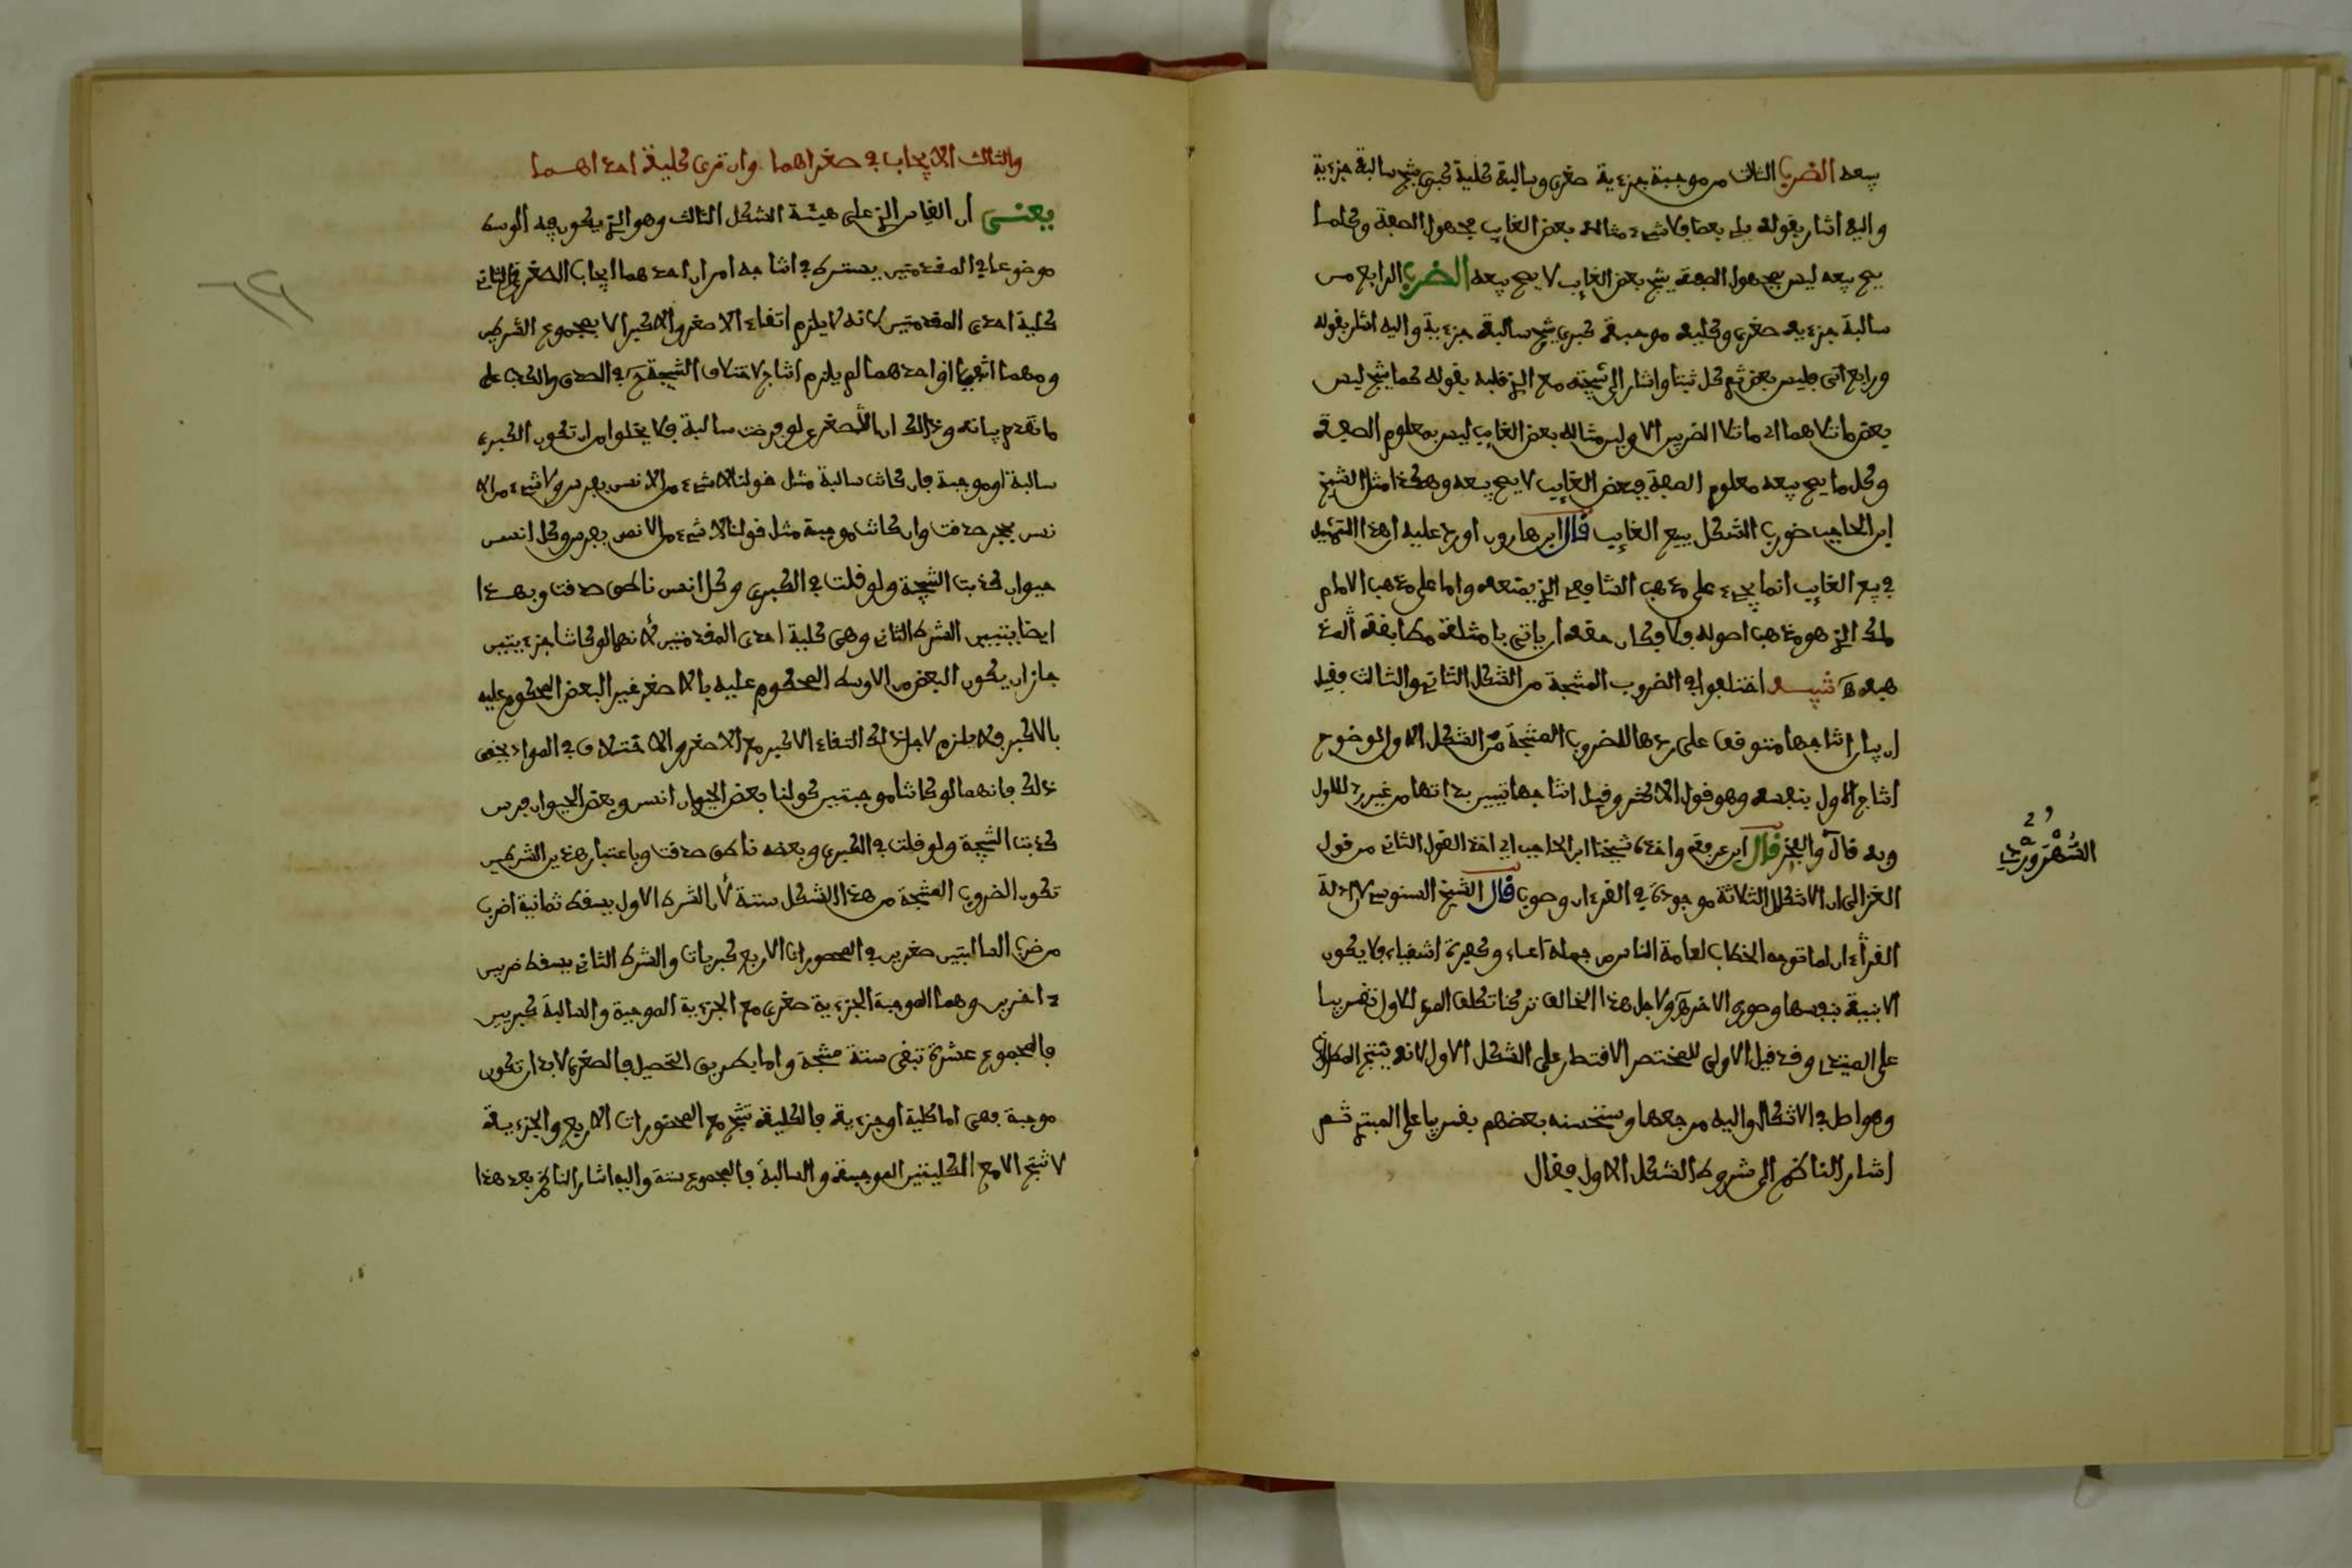 بيعه الضرب الثالث من موجبة جزءية صغرى وسالبة كلية كبرى ينتج سالبة جزءية
واليه اشار بقوله يلي بعضا فلا شيء مثاله بعض الغايب مجهول الصفة وكلما
يصح بيعه ليس بمجهول الصفة ينتج بعض الغايب لا يصح بيعه الضرب الرابع من
سالبة جزءية صغرى وكلية موجبة كبرى ينتج سالبة جزءية واليه اشار بقوله
ورابع اتى فليس بعض ثم كل ثبتا واشار الى نتيجته مع الذي قبله بقوله كما ينتج ليس
بعض ما تلاهما اي ما تلا الضربين الاولين مثاله بعض الغايب ليس بمعلوم الصفة
وكل ما يصح بيعه معلوم الصفة فبعض الغايب لا يصح بيعه وهكذا مثل الشيخ
ابن الحاجب ضروب الشكل ببيع الغايب قال ابن هارون اورد عليه ان هذا التمثيل
في بيع الغايب انما يجيء على مذهب الشافعي الذي يمنعه واما على مذهب الامام
ملك الذي هو مذهب اصوله فلا فكان حقه ان ياتي بامثلة مطابقة لمذ
هبه تنبيه اختلفوا في الضروب المنتجة من الشكل الثاني والثالث فقيل
ان بيان انتاجها متوقف على ردها للضروب المنتجة من الشكل الاول لوضوح
انتاج الاول بنفسه وهو قول الاكثر وقيل انتاجها يتبين بذاتها من غير رد للاول
وبه قال والفخر قال ابن عرفة واخذ شيخنا ابن الحاجب اي اخذ القول الثاني من قول
السهروردي
الغزالي ان الاشكال الثلاثة موجودة في القرءان وصوب قال الشيخ السنوسي لان ادلة
القرءان لما توجه الخطاب لعامة الناس من جملة اعناء وكفرة اشقياء فلا يكون
الا بينة بنفسها وصور الاخر ولاجل هذا الخالف تركنا تكلف الرد للاول تقريبا
على المبتدي وقد قيل الاولى للمختصر الاقتصار على الشكل الاول لانه ينتج المطالب
وهو اصل في الاشكال واليه مرجعها ويستحسنه بعضهم تقريبا على المبتدي ثم
اشار الناظم الى شروط الشكل الاول فقال
والثالث الايجاب في صغراهما وان ترى كلية احداهما
يعني ان القياس الذي على هيئة الشكل الثالث وهو الذي يكون فيه الوسط
موضوعا في المقدمتين يشترط في انتاجه امران احدهما ايجاب الصغرى والثاني
كلية احدى المقدمتين لانه لا يلزم التقاء الاصغر والاكبر الا بمجموع الشرطين
ومهما انتفيا او احدهما لم يلزم انتاج لاختلاف النتيجة في الصدق والكذب على
ما تقدم بيانه وذلك ان الصغرى لو فرضت سالبة فلا يخلوا من ان تكون الكبرى
سالبة او موجبة فان كانت سالبة مثل قولنا لا شيء من الانس بفرس ولا شيء من الا
نس بحجر صدقت وان كانت موجبة مثل قولنا لا شيء من الانس بفرس وكل انس
حيوان كذبت النتيجة ولو قلت في الكبرى وكل انس ناطق صدقت وبهذا
ايضا يتبين الشرط الثاني وهي كلية احدى المقدمتين لانهما لو كانتا جزءيتين
جاز ان يكون البعض من الاوسط المحكوم عليه بالاصغر غير البعض المحكوم عليه
بالاكبر فلا يلزم لاجل ذلك التقاء الاكبر مع الاصغر والاختلاف في المواد يحقق
ذلك فانهما لو كانتا موجبتين كقولنا بعض الحيوان انس وبعض الحيوان فرس
كذبت النتيجة ولو قلت في الكبرى وبعضه ناطق صدقت وباعتبار هذين الشرطين
تكون الضروب المنتجة من هذا الشكل ستة لان الشرط الاول يسقط ثمانية اضرب
من ضرب السالبتين صغريين في المحصورات الاربع كبريات والشرط الثاني يسقط ضربين
ءاخرين وهما الموجبة الجزءية صغرى مع الجزءية الموجبة والسالبة كبريين
فالمجموع عشرة تبقى ستة منتجة واما بطريق التحصيل فالصغرى لا بد ان تكون
موجبة فهي اما كلية او جزءية فالكلية تنتج مع المحصورات الاربع والجزءية
لا تنتج الا مع الكليتين الموجبة والسالبة فالمجموع ستة واليه اشار الناظم بعد هذا